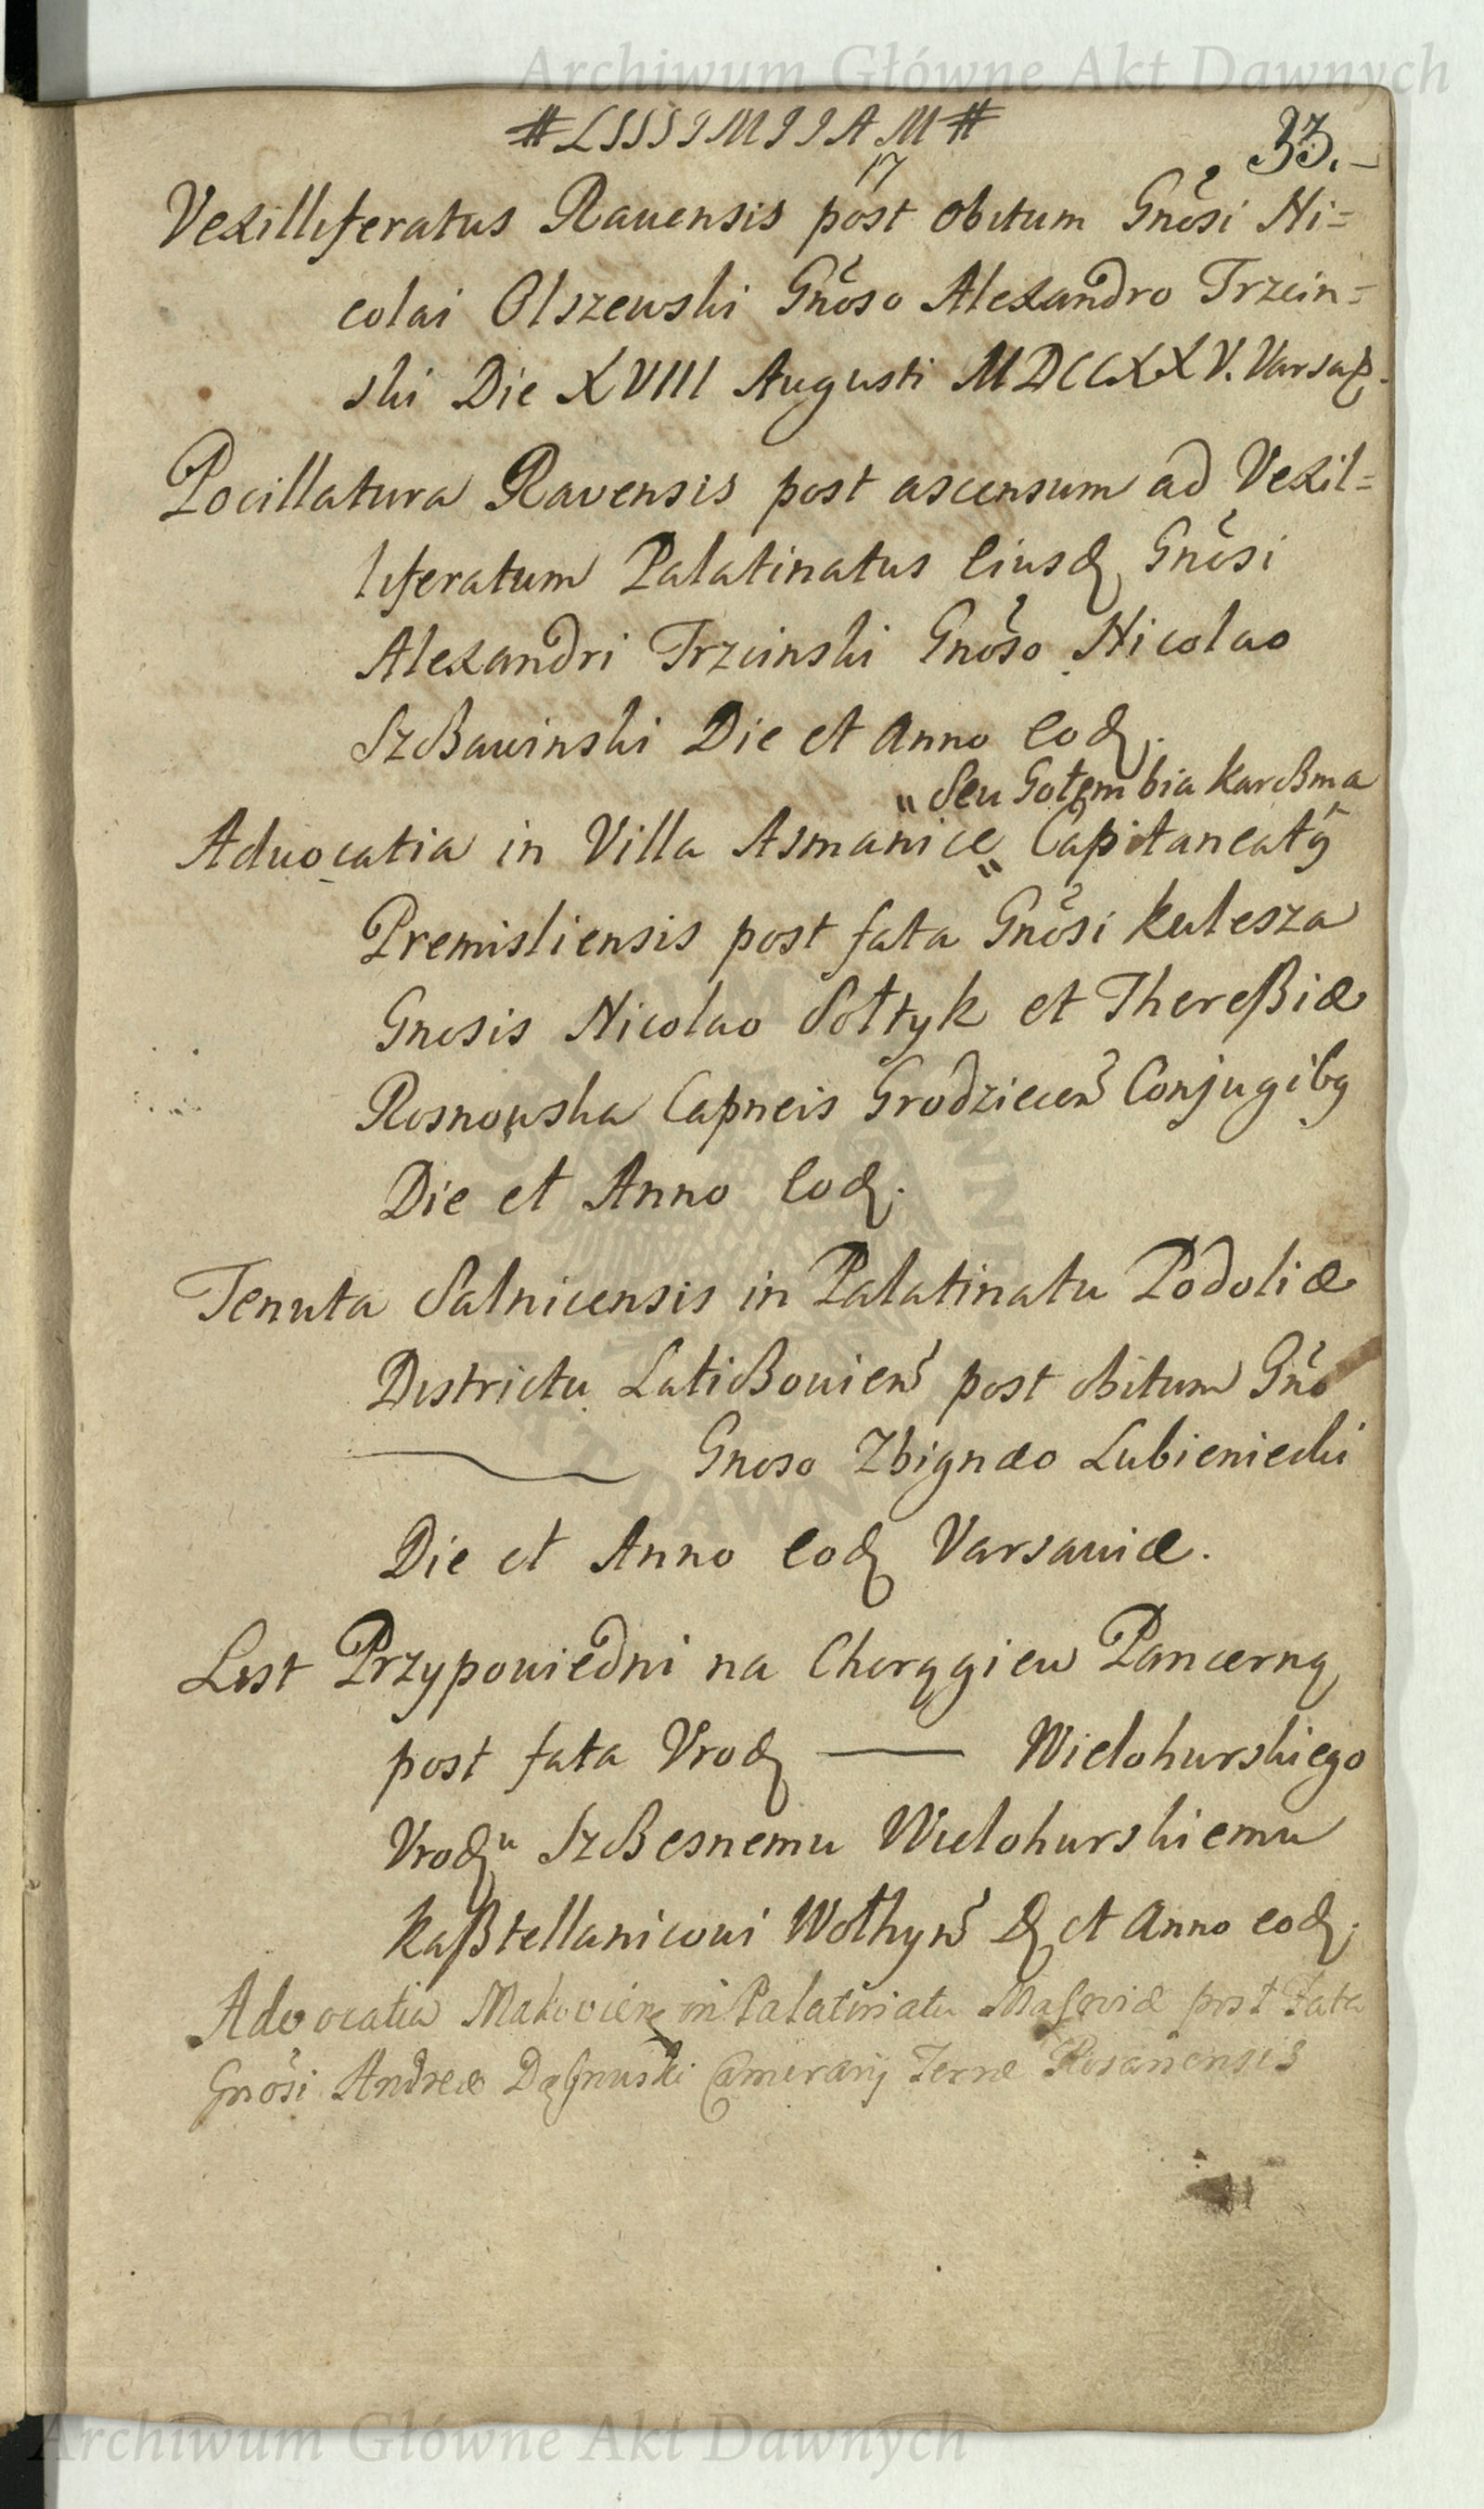 Archiwum Główne Akt Dawnych
#LSSSIMIIAM#
33.
17
Vexilliferatus Rauensis post obitum Gnõsi Ni=
colai Olszewski Gnõso Alexandro Trzcin=
ski Die XVIII Augusti MDCCXXV. Varsaꝫ.
Pocillatura Ravensis post ascensum ad Vexil=
liferatum Palatinatus Eiusđ Gnõsi
Alexandri Trzcinski Gnõso Nicolao
Szczawinski Die et Anno Eođ.
" Seu Gołembia karczma
Aduocatia in Villa Asmanice „ Capitaneatꝰ
Premisliensis post fata Gnõsi Kulesza
Gnosis Nicolao Sołtyk et Thereßiæ
Rosnowska Capneis Grodziecen̄ Conjugibꝰ
Die et Anno Eođ.
Tenuta Salnicensis in Palatinatu Podoliæ
Districtu Laticzouien̄ post obitum Gnõ
Gnoso Zbignæo Lubieniecki
Die et Anno eođ Varsauiæ.
List Przypowiedni na Chorągiew Pancerną
post fata Vrođ —— Wielohurskiego
Vrođᵘ Szczesnemu Wielohurskiemu
Kaßtellanicowi Wołhyn̄ Đ et Anno eođ.
Advocatia Makovien̄ in Palatinatu Masoviæ post Fata
Gnõsi Andreæ Camerarij Terræ Rosanensis
ARCHIWUM GŁÓWNE AKT DAWNYCH
Archiwum Główne Akt Dawnych